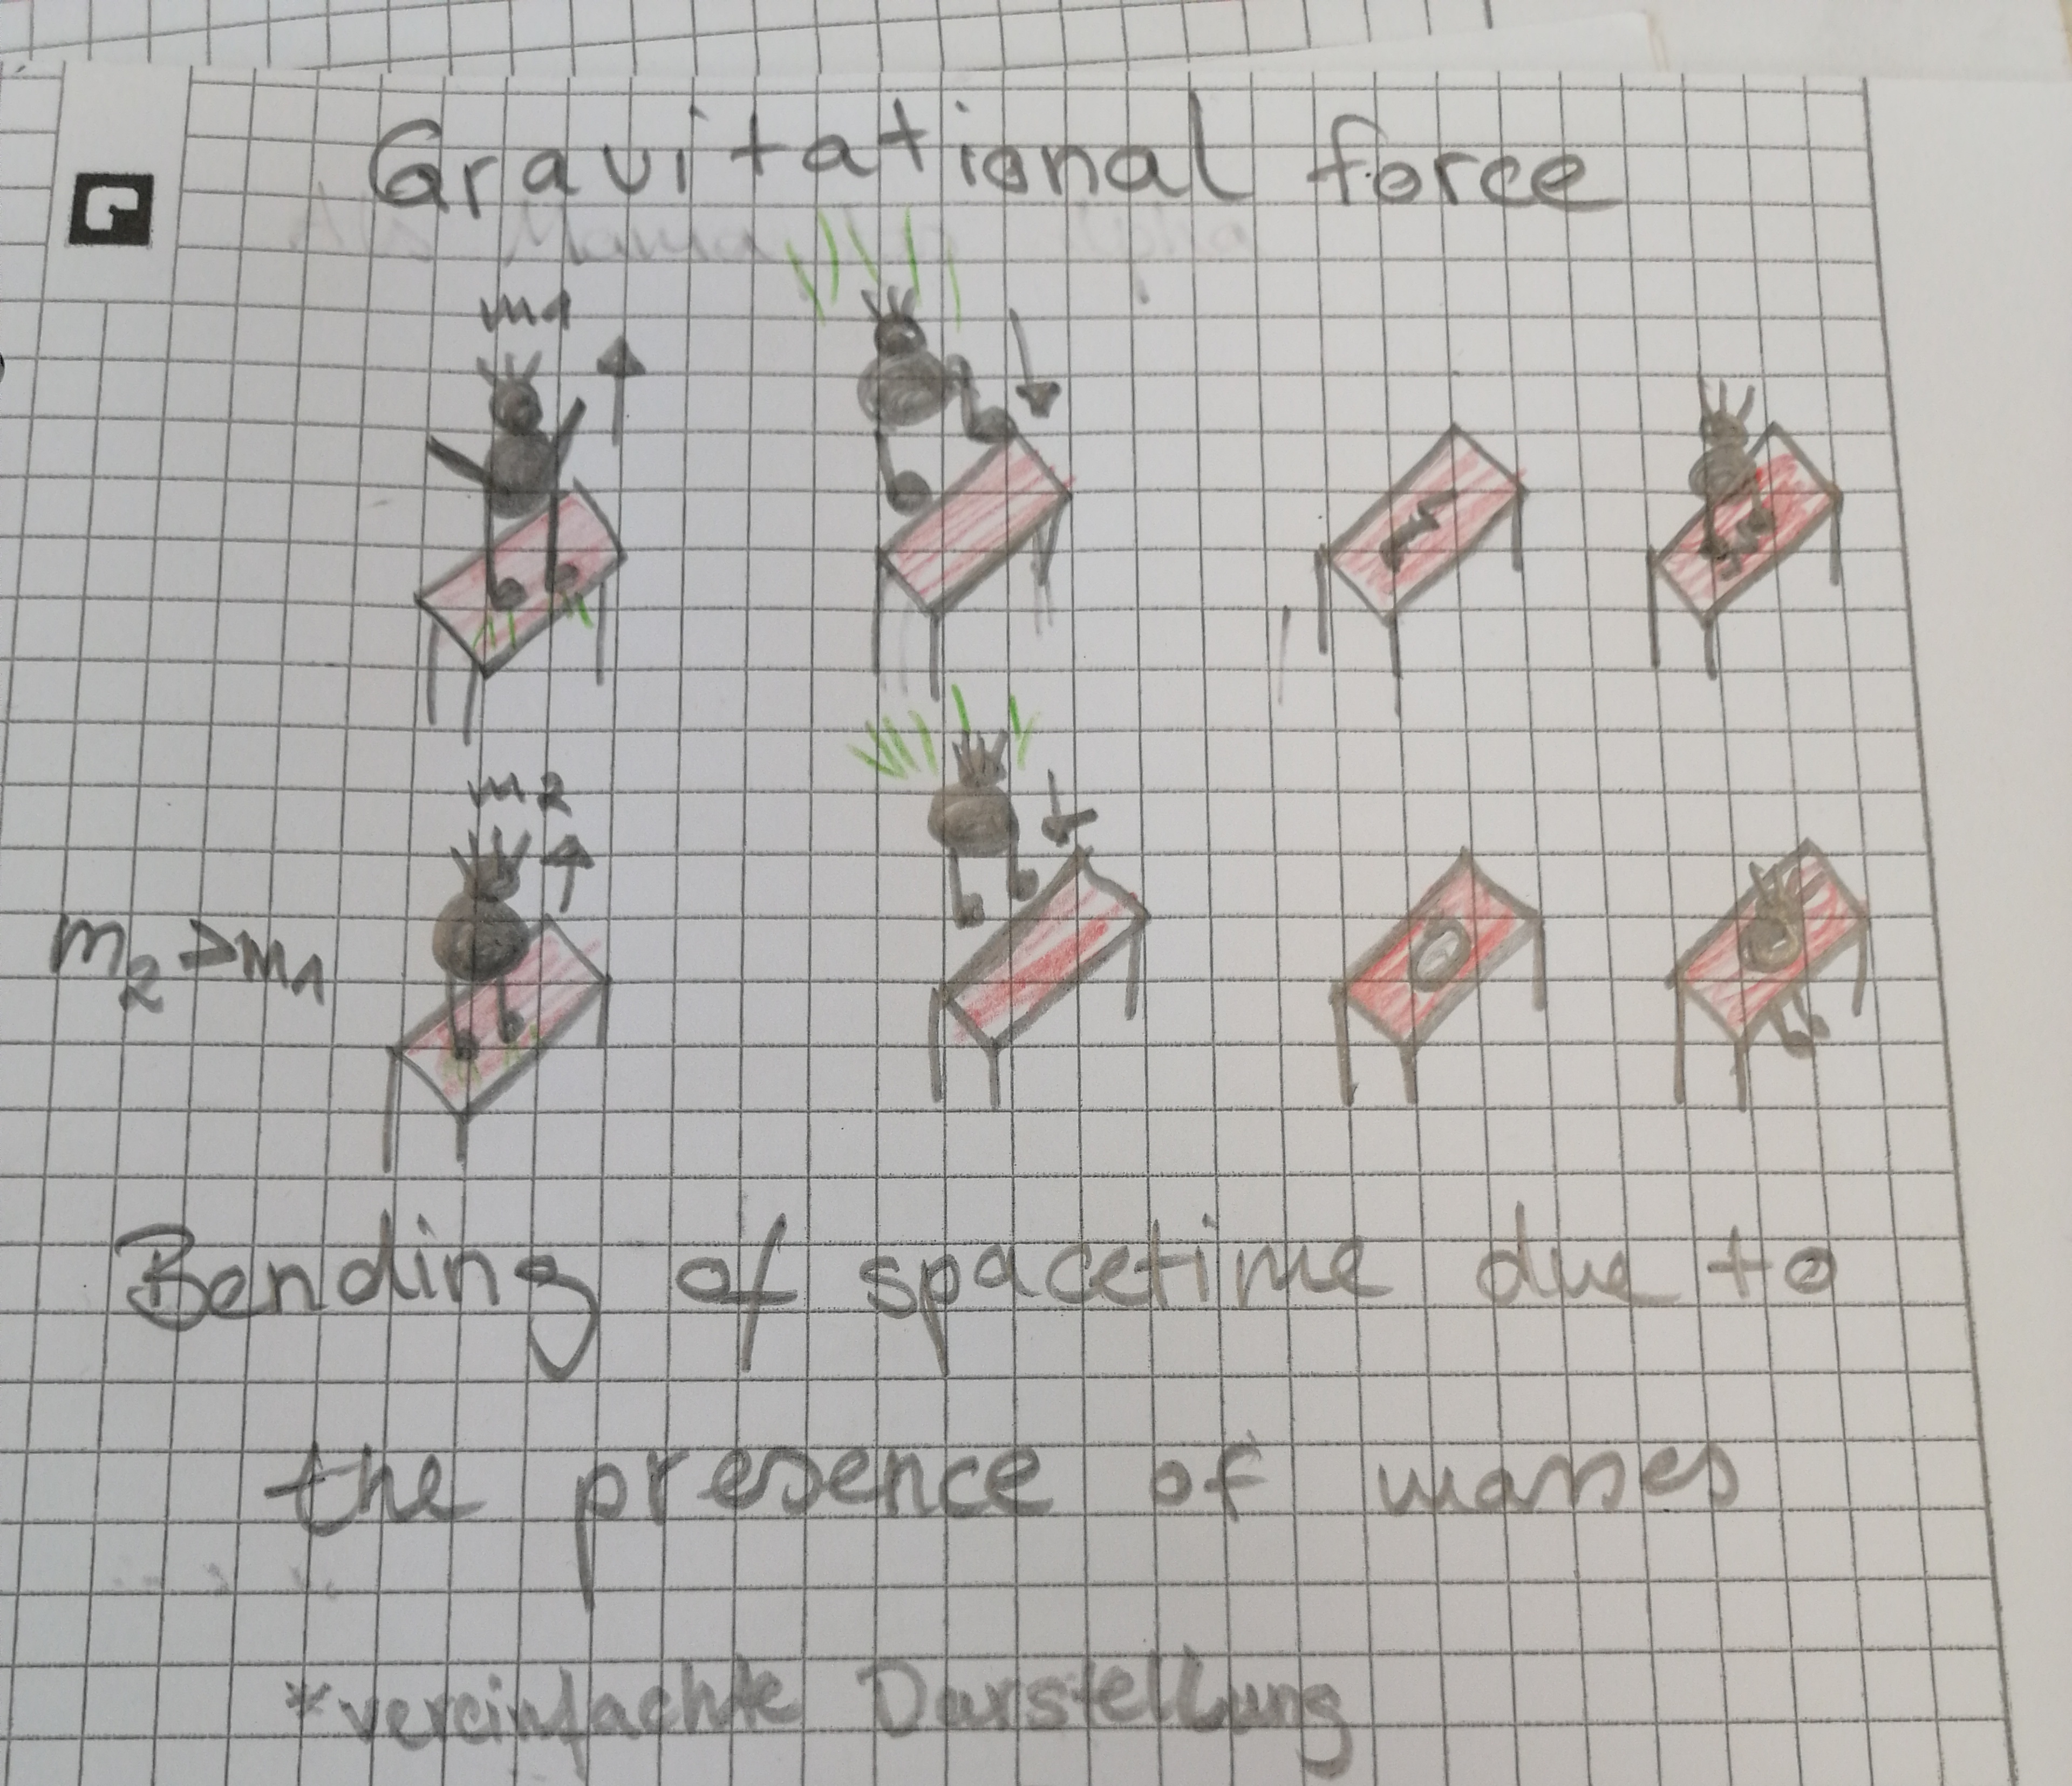 Gravitational force
m1
m2
m2 > m1
Bending of spacetime due to
the presence of masses
*vereinfachte Darstellung